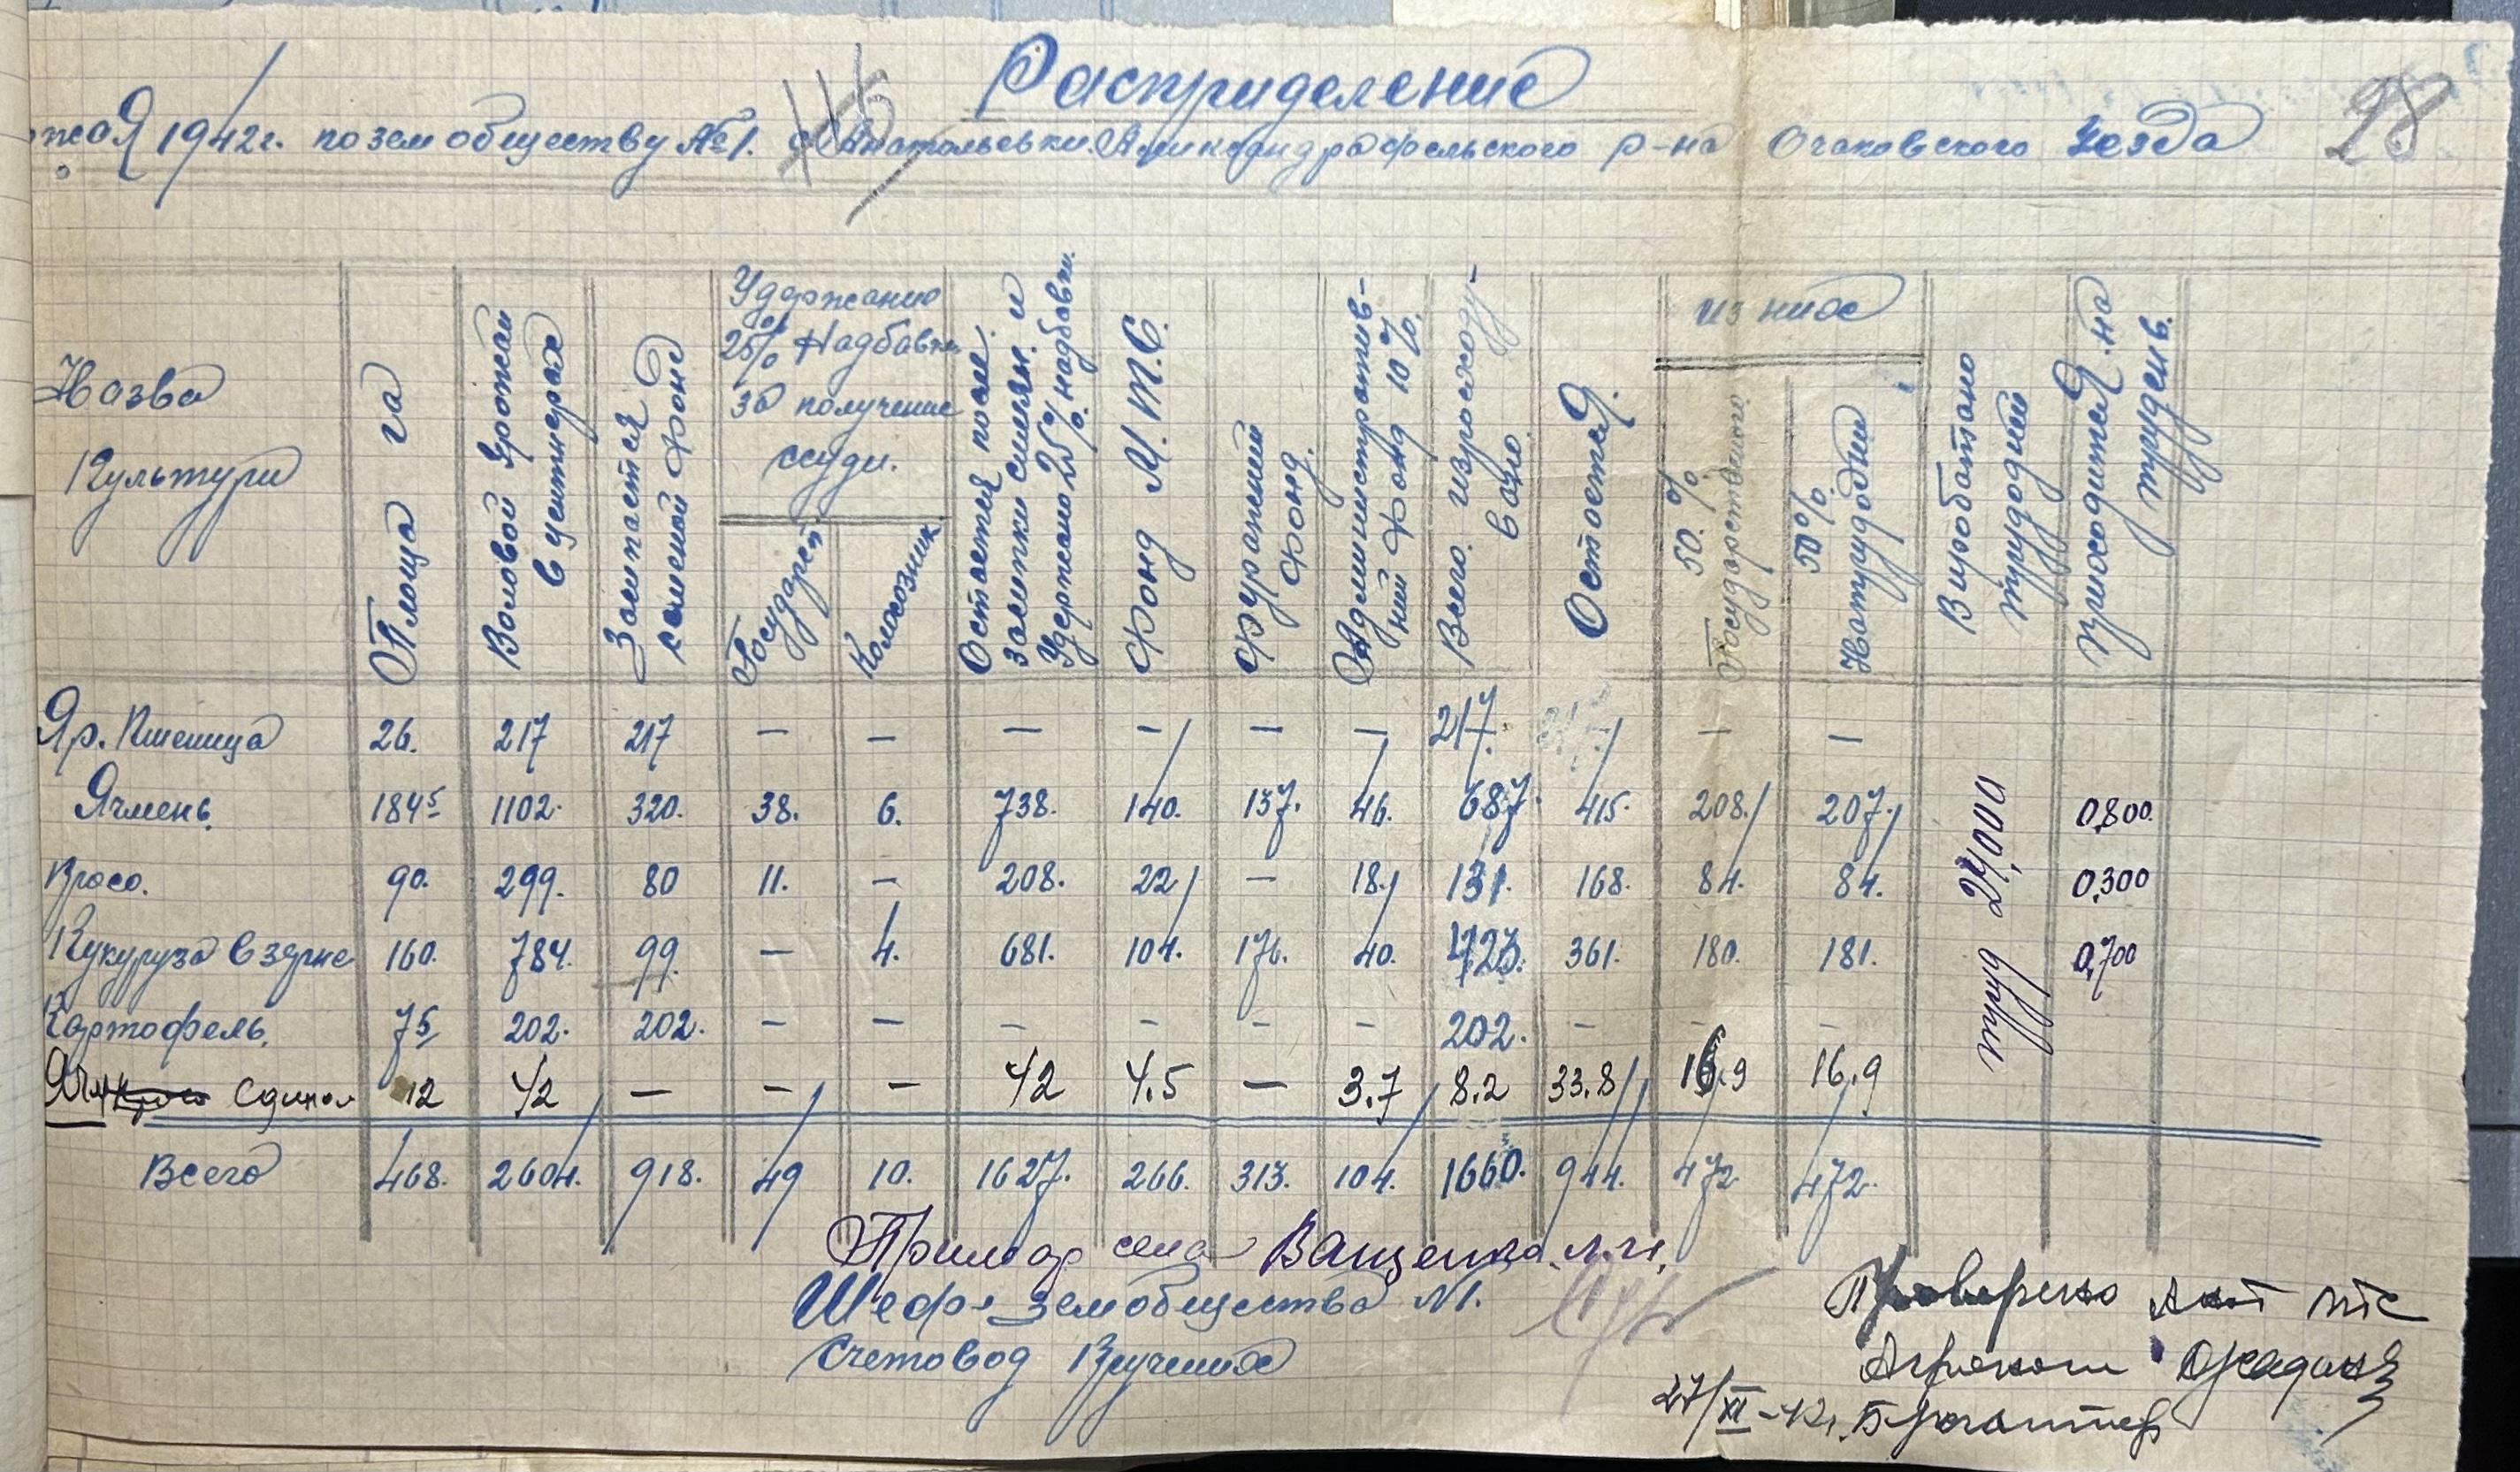 Расприделение
116
28
жая 1942г. по земобществу №1. с Анатольевки. Александрафельского р-на Очаковского Уезда
Назва Культури
Площа га
Валовой Урожай в центнерах
Засипается семеной фонд
Удержание 25% Надбавки за получение ссуди.
Государст
Колхозник
Остается после засипки семян. и Удержано 25% надбавки.
Фонд М.Т.С.
Фуражний фонд.
Административ-ний фонд 10%.
Всего израсходу-вано.
Остаток.
из них
50% Государственой
50% На трудодни
Виробатано трудодней
Приходится на трудень.
Яр. Пшеница 26. 217 217 — — — — — — 217. — —
Ячмень. 184⁵ 1102. 320. 38. 6. 738. 140. 137. 46. 687. 415. 208. 207. 0,800.
Просо. 90. 299. 80 11. — 208. 22 — 18. 131. 168. 84. 84. 0,300
Кукуруза в зерне 160. 784. 99. — 4. 681. 104. 176. 40. 423. 361. 180. 181. 0,700
24000 труд
Картофель. 75 202. 202. — — — — — — 202. — — —
12 42 — — — 42 4.5 — 3.7 8.2 33.8 16.9 16.9
Всего 468. 2604. 918. 49 10. 1627. 266. 313. 104. 1660. 944. 472. 472.
Примар села Ващенко
Шеф. земобщества №1.
Счетовод
Проверено мтс
Агроном
27/XI-42г. Бухгалтер